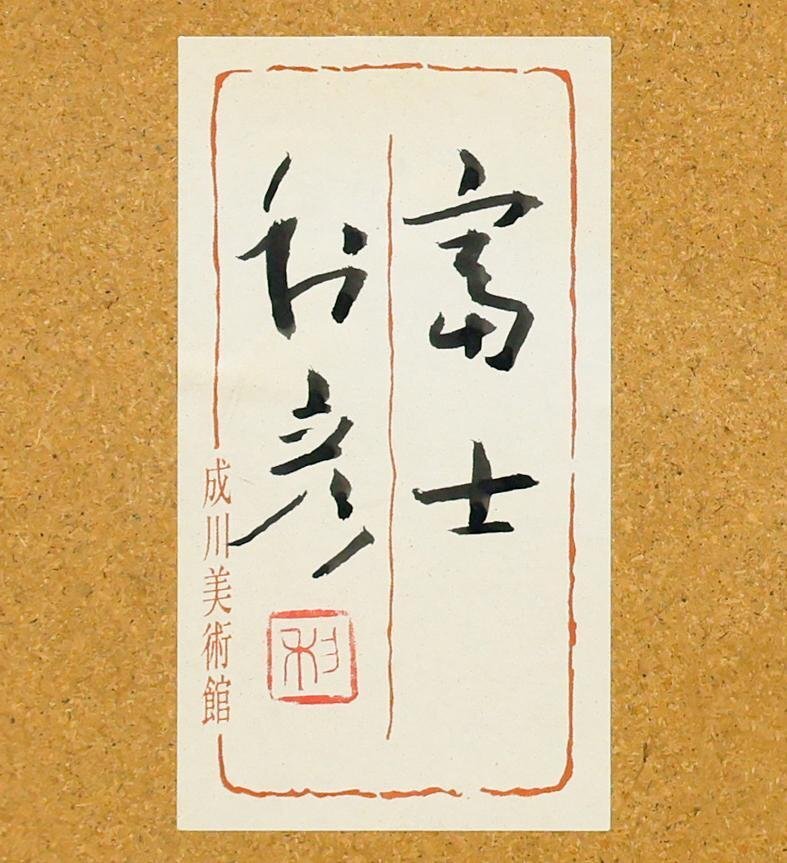 富士
利彦
利
成川美術館